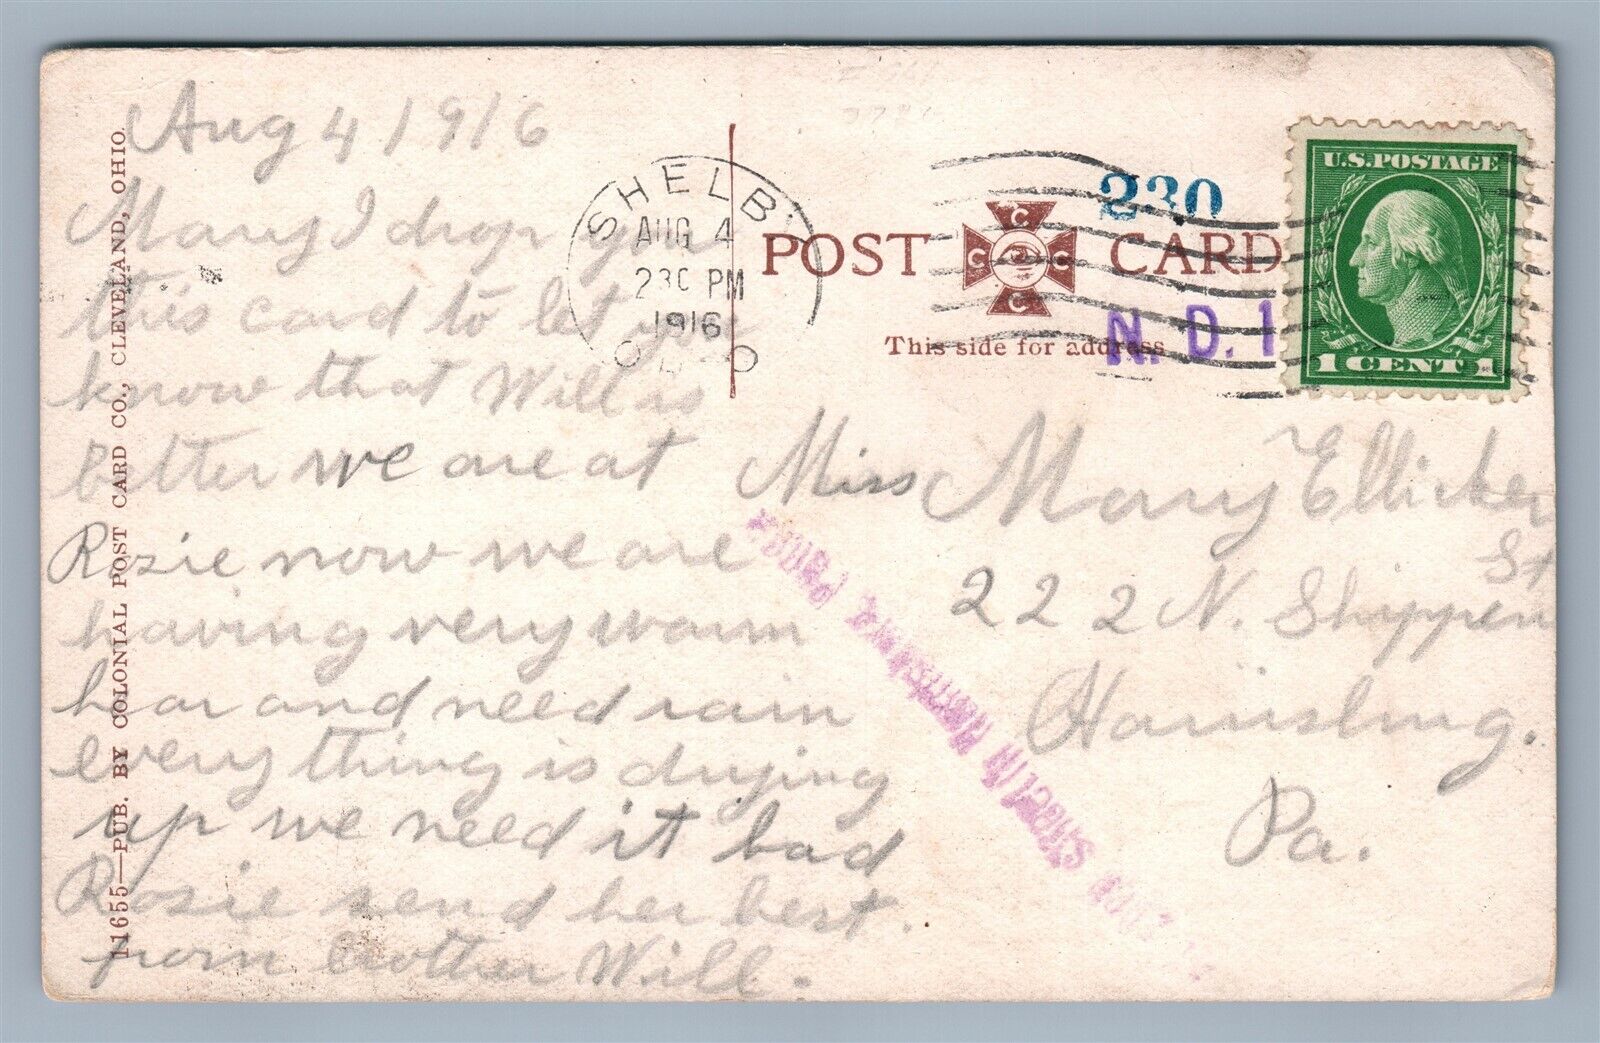 Aug 4 1916
Mary I drop you
this card to let you
know that Will is
better we are at
Rozie now we are
having very warm
hear and need rain
every thing is drying
up we need it bad
Rozie send her best.
from brother Will.
11655—PUB. BY COLONIAL POST CARD CO., CLEVELAND, OHIO.
SHELBY
AUG 4
230 PM
1916
OHIO
230
POST CARD
C C C C
This side for address
N. D. 1
U.S. POSTAGE
1 CENT 1
Miss Mary Ellicker
222 N. Shippen St
Harrisburg.
Pa.